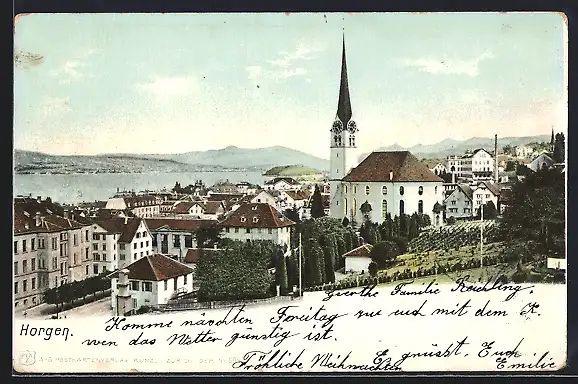 Horgen.
Werthe Familie Reichling,
Komme nächsten Freitag zu euch mit dem K.
wen das Wetter günstig ist.
Fröhliche Weihnachten Es grüsst Euch
Emilie
A-G POSTKARTENVERLAG KÜNZLI, ZÜRICH. DEP. N